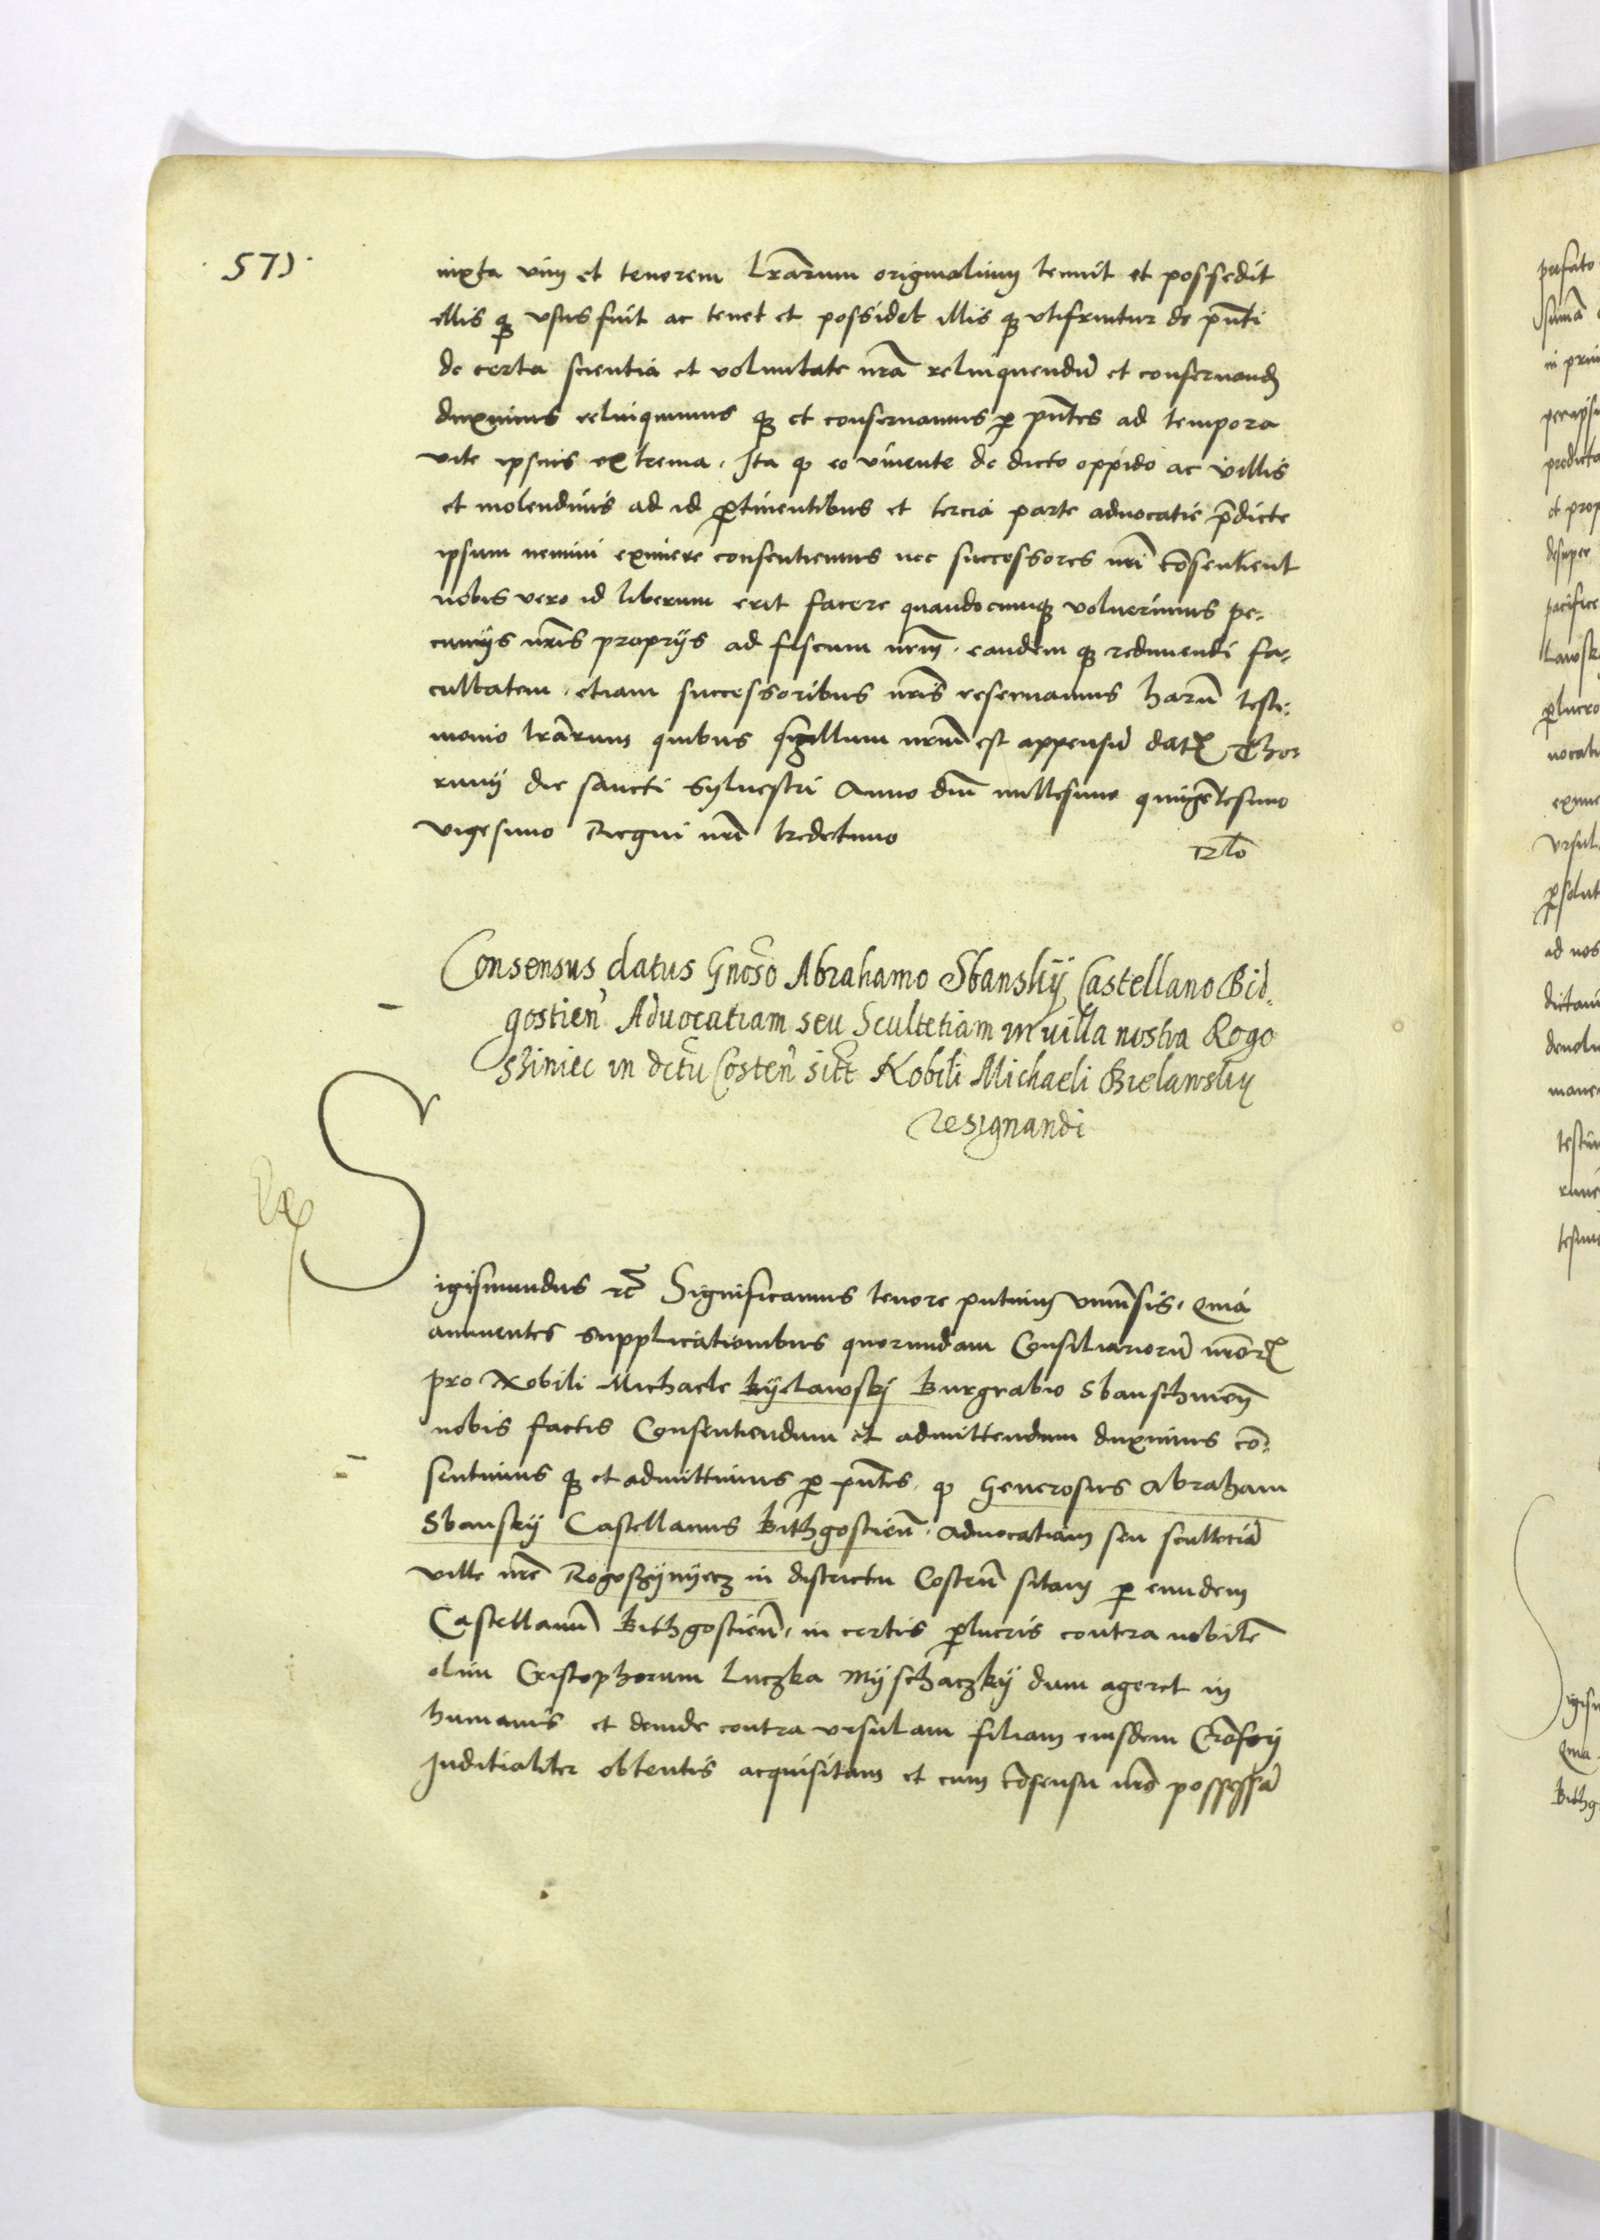 571
iuxta vim et tenorem lrarum originalium tenuit et possedit
illis q usus fuit ac tenet et possidet illis q utifruitur de pnti
de certa scientia et voluntate nra relinquendu et conservand
duximus relinquimus q et conservamus p pntes ad tempora
vite ipsius extrema. Ita q eo vivente de dicto oppido ac villis
et molendinis ad id ptinentibus et tercia parte advocatie pdicte
ipsum nemini eximere consentiemus nec successores nri consentient
nobis vero id liberum erit facere quandocumq voluerimus pe-
cunijs nris proprijs ad fiscum nrm. eandem q redimendi fa-
cultatem. etiam successoribus nris reservamus haru testi-
monio lrarum quibus sigillum nrum est appensu dat Thor
runij die sancti Sylvestri Anno dni millesimo quingetesimo
vigesimo Regni nri tredecimo
Rlo
Consensus datus Gnoso Abrahamo Sbanskij Castellano Bid-
gostien Advocatiam seu Scultetiam in villa nostra Rogo
shiniec in dctu Costen sitt Nobili Michaeli Bielawskij
resignandi
Sigismundus rc Significamus tenore putium univsis. Quia
annuentes supplicationibus quorundam Consiliarioru nror
pro Nobili Michaele Byelawskj Burgrabio Sbanschinen
nobis factis Consentiendum et admittendum duximus co-
sentimus q et admittimus p pntes. q Generosus Abraham
Sbanskij Castellanus Bithgostien. Advocatiam seu scultetia
ville nre Rogoszijnijecz in districtu Costen sitam p eundem
Castellanu Bithgostien. in certis plucris contra nobile
olim Cristophorum Luczka Mijschaczkij dum ageret in
humanis et deinde contra Ursulam filiam eiusdem
Juditialiter obtentis acquisitam et cum cosensu nro possessa